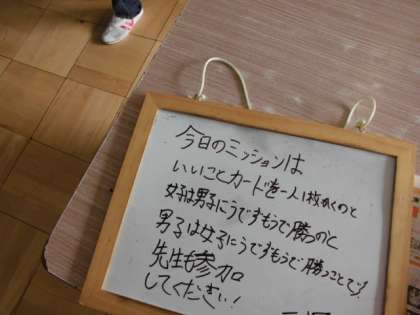 今日のミッションは
いいことカードを一人1枚かくのと
女子は男子にうですもうで勝つのと
男子は女子にうですもうで勝つことです。
先生も参加
してください!